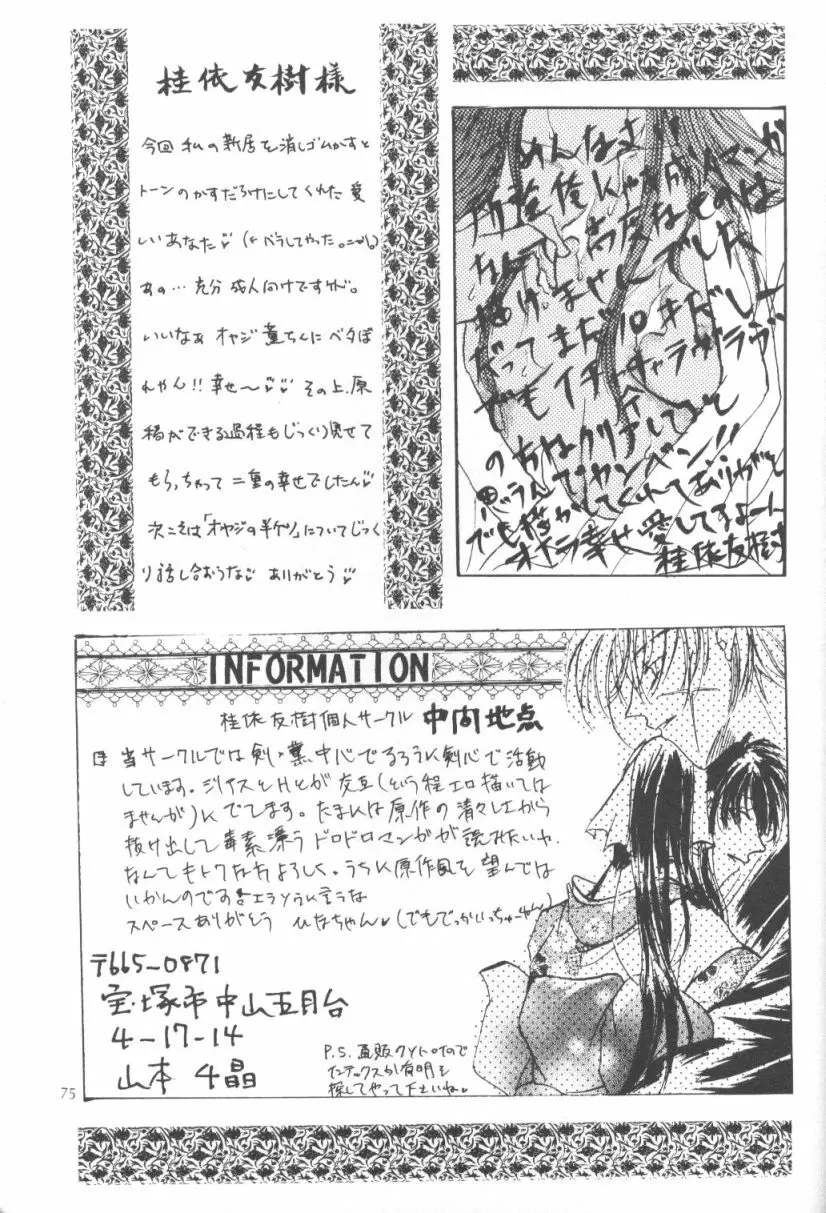 桂依友樹様
今回 私の新居を消しゴムかすと
トーンのかすだらけにしてくれた 愛
しいあなた♡(←バラしてやった。ニヤリ)
あの… 充分 成人向けですケド。
いいなぁ オヤジ 薫ちんに ベタぼ
れやん!! 幸せ〜♡♡ その上、原
稿ができる過程もじっくり見せて
もらっちゃって 二重の幸せでしたん♡
次こそは「オヤジの半ケツ」についてじっく
り話し合おうな♡ ありがとう♡
ごめんなさい!!
所詮俺にゃ成人マンガ
なんて高度なものは
描けませんでした
だってまだ10才だしー
でもイチャイチャラヴラヴ
のちはクリアしてると
思うんでカンベン!!
でも描かしてくれてありがと
オイラ幸せ 愛してるよーん
桂依友樹
INFORMATION
桂依友樹個人サークル 中間地点
当サークルでは剣・薫中心でるろうに剣心で活動
しています。シリアスとHとが交互(という程エロ描いては
ませんが)にでてます。たまには原作の清々しエから
抜け出して毒素漂うドロドロマンガが読みたいわ
なんてもトクな方よろしく。うちに原作風を望んでは
いかんのです
スペースありがとう ひなちゃん♡(でもでっかいっちゅーねん)
〒665-0871
宝塚市中山五月台
4-17-14
山本 千晶
P.S. 通販
インデックスか有明を
探してやって下さいね♡
75